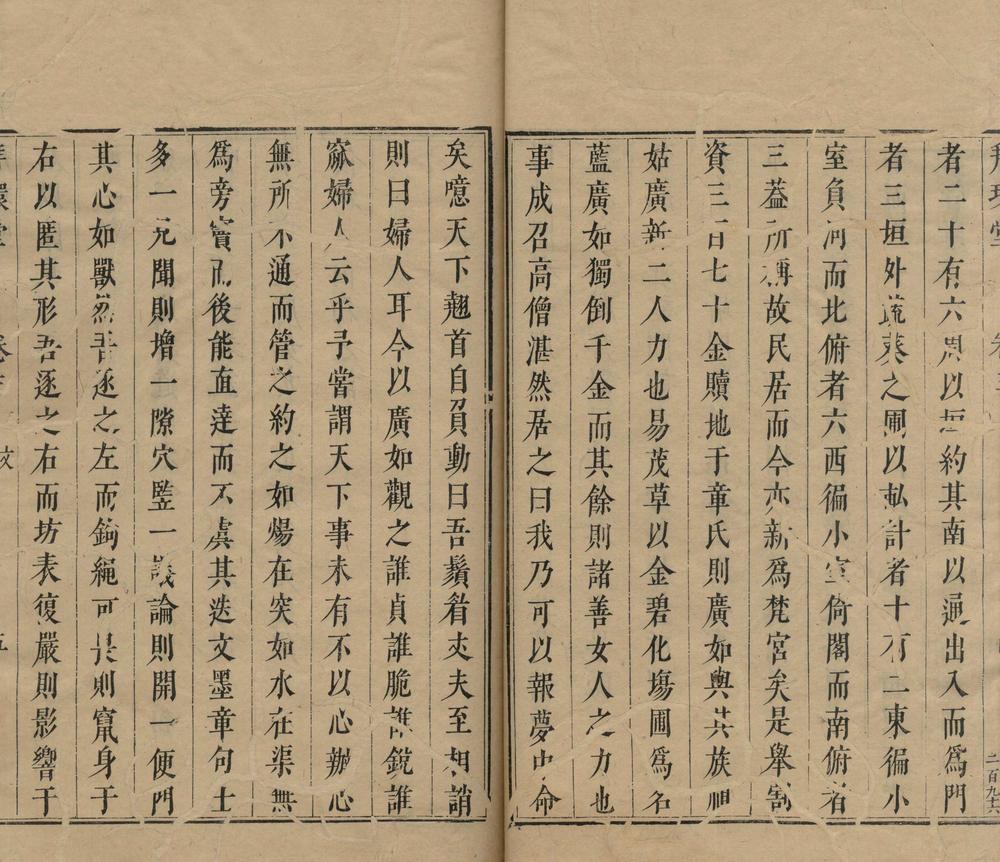 者二十有六周以垣約其南以通出入而爲門
者三垣外蔬菜之圃以畝計者十有二東徧小
室負河而比俯者六西徧小室倚閣而南俯者
三蓋所構故民居而今亦新爲梵宮矣是舉割
資三百七十金贖地于章氏則廣如輿其族
姑廣新二人力也易茂草以金碧化場圃爲名
藍廣如獨倒千金而其餘則諸善女人之力也
事成召高僧湛然居之曰我乃可以報夢中命
矣噫天下翹首自負動曰吾鬚眉丈夫至相誚
則曰婦人耳今以廣如觀之誰貞誰脆誰銳誰
窳婦人云乎予嘗謂天下事未有不以心辦心
無所不通而管之約之如煬在突如水在渠無
爲旁竇而後能直達而不虞其迭文墨章句士
多一見聞則增一隙穴監一議論則開一便門
其心如獸然吾逐之左而鉤繩可畏則竄身于
右以匿其形吾逐之右而坊表復嚴則影響于